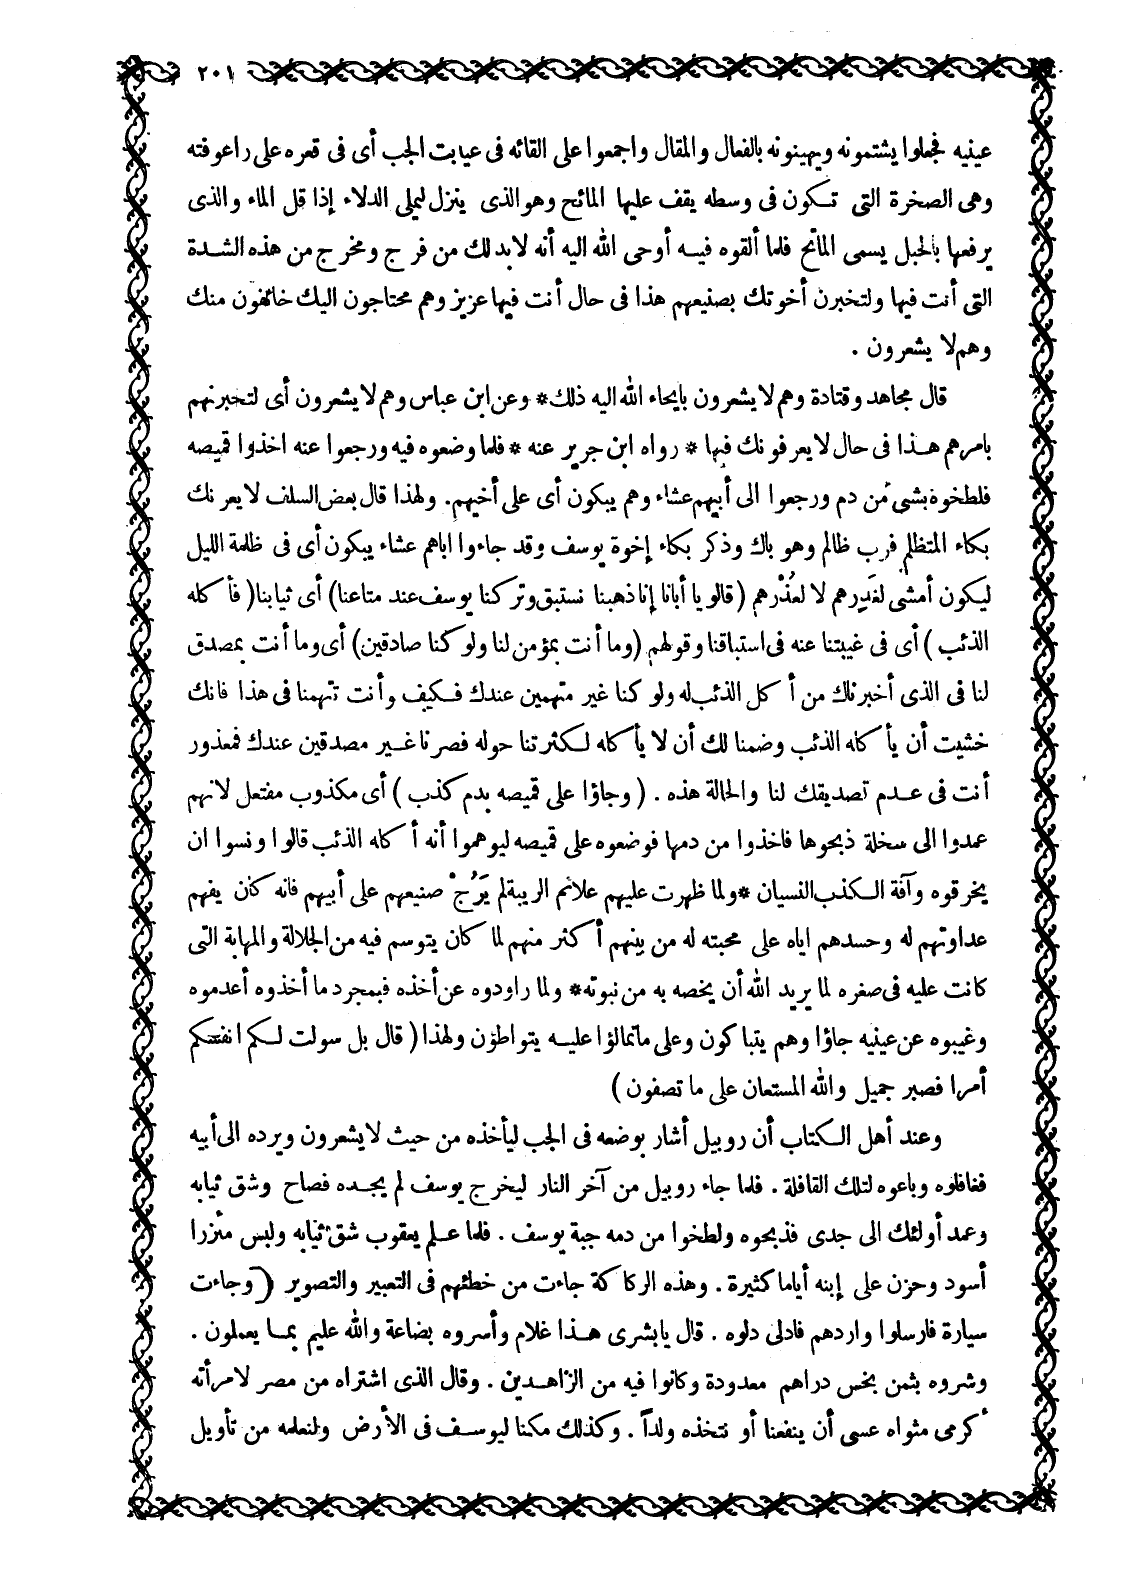 ٢٠١
عينيه فجعلوا يشتمونه ويهينونه بالفعال والمقال واجمعوا على القائه فى عيابت الجب أى فى قعره على راعوفته
وهى الصخرة التى تكون فى وسطه يقف عليها المائح وهو الذى ينزل ليملى الدلاء إذا قل الماء والذى
يرفعها بالحبل يسمى الماتح فلما ألقوه فيه أوحى الله اليه أنه لا بد لك من فرج ومخرج من هذه الشدة
التى أنت فيها ولتخبرن أخوتك بصنيعهم هذا فى حال أنت فيها عزيز وهم محتاجون اليك خائفون منك
وهم لا يشعرون .
قال مجاهد وقتادة وهم لا يشعرون بايحاء الله اليه ذلك* وعن ابن عباس وهم لا يشعرون أى لتخبرنهم
بامرهم هذا فى حال لا يعرفونك فيها * رواه ابن جرير عنه * فلما وضعوه فيه ورجعوا عنه اخذوا قميصه
فلطخوه بشىء من دم ورجعوا الى أبيهم عشاء وهم يبكون أى على أخيهم. ولهذا قال بعض السلف لا يغرنك
بكاء المتظلم فرب ظالم وهو باك وذكر بكاء إخوة يوسف وقد جاءوا اباهم عشاء يبكون أى فى ظلمة الليل
ليكون أمشى لغَدِرهم لا لعُذْرهم (قالو يا أبانا إنا ذهبنا نستبق وتركنا يوسف عند متاعنا) أى ثيابنا( فأكله
الذئب ) أى فى غيبتنا عنه فى استباقنا وقولهم (وما أنت بمؤمن لنا ولو كنا صادقين) أى وما أنت بمصدق
لنا فى الذى أخبرناك من أكل الذئب له ولو كنا غير متهمين عندك فكيف وأنت تتهمنا فى هذا فانك
خشيت أن يأكله الذئب وضمنا لك أن لا يأكله لكثرتنا حوله فصرنا غير مصدقين عندك فمعذور
أنت فى عدم تصديقك لنا والحالة هذه . ( وجاؤا على قميصه بدم كذب ) أى مكذوب مفتعل لانهم
عمدوا الى سخلة ذبحوها فاخذوا من دمها فوضعوه على قميصه ليوهموا أنه أكله الذئب قالوا ونسوا ان
يخرقوه وآفة الكذب النسيان *ولما ظهرت عليهم علائم الريبة لم يَرُجْ صنيعهم على أبيهم فانه كان يفهم
عداوتهم له وحسدهم اياه على محبته له من بينهم أكثر منهم لما كان يتوسم فيه من الجلالة والمهابة التى
كانت عليه فى صغره لما يريد الله أن يخصه به من نبوته* ولما راودوه عن أخذه فبمجرد ما أخذوه أعدموه
وغيبوه عن عينيه جاؤا وهم يتباكون وعلى ماتمالؤا عليه يتواطؤن ولهذا ( قال بل سولت لكم انفسكم
أمرا فصبر جميل والله المستعان على ما تصفون )
وعند أهل الكتاب أن روبيل أشار بوضعه فى الجب ليأخذه من حيث لا يشعرون ويرده الى أبيه
فغافلوه وباعوه لتلك القافلة . فلما جاء روبيل من آخر النار ليخرج يوسف لم يجده فصاح وشق ثيابه
وعمد أولئك الى جدى فذبحوه ولطخوا من دمه جبة يوسف . فلما علم يعقوب شق ثيابه ولبس مئزرا
أسود وحزن على إبنه أياما كثيرة . وهذه الركاكة جاءت من خطئهم فى التعبير والتصوير ( وجاءت
سيارة فارسلوا واردهم فادلى دلوه . قال يابشرى هذا غلام وأسروه بضاعة والله عليم بما يعملون .
وشروه بثمن بخس دراهم معدودة وكانوا فيه من الزاهدين . وقال الذى اشتراه من مصر لامرأته
أكرمى مثواه عسى أن ينفعنا أو نتخذه ولداً . وكذلك مكنا ليوسف فى الأرض ولنعلمه من تأويل